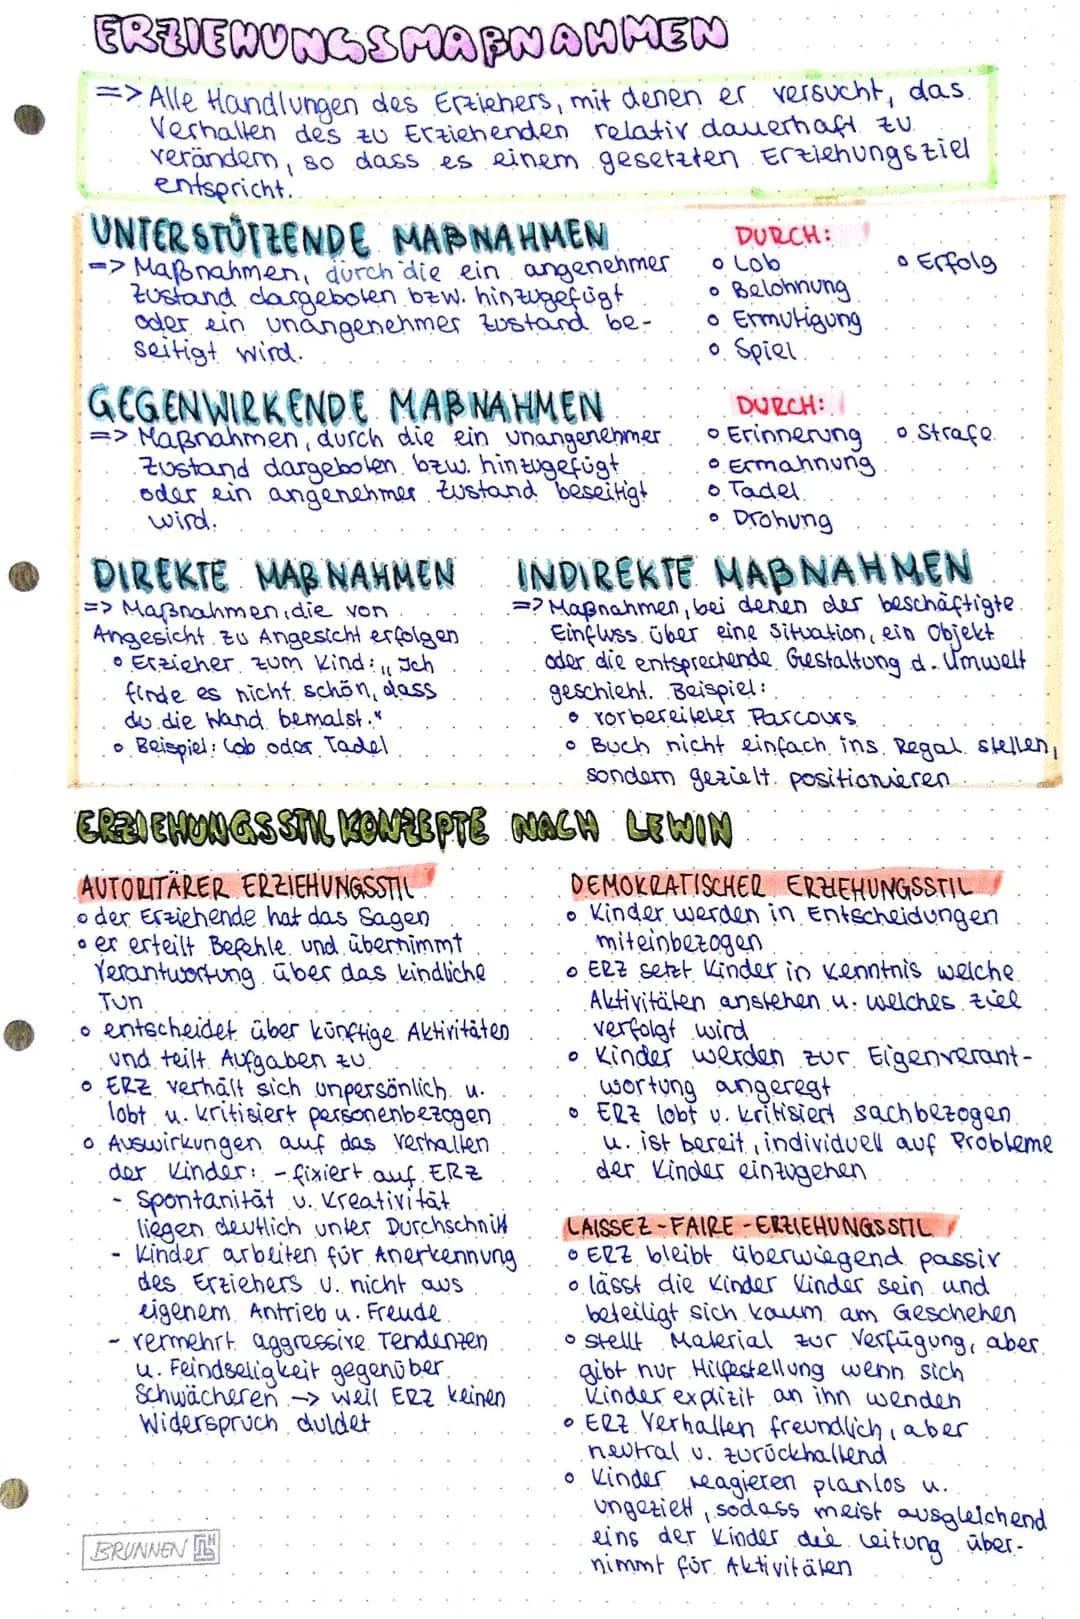 ERZIEHUNGSMAßNAHMEN
=> Alle Handlungen des Erziehers, mit denen er versucht, das
Verhalten des zu Erziehenden relativ dauerhaft zu
verändern, so dass es einem gesetzten Erziehungsziel
entspricht.
UNTERSTÜTZENDE MAßNAHMEN
=> Maßnahmen, durch die ein angenehmer
Zustand dargeboten bzw. hinzugefügt
oder ein unangenehmer Zustand be-
seitigt wird.
DURCH:
o Lob
o Belohnung
o Ermutigung
o Spiel
o Erfolg
GEGENWIRKENDE MAßNAHMEN
=> Maßnahmen, durch die ein unangenehmer
Zustand dargeboten bzw. hinzugefügt
oder ein angenehmer Zustand beseitigt
wird.
DURCH:
o Erinnerung
o Ermahnung
o Tadel
o Drohung
o Strafe
DIREKTE MAßNAHMEN
=> Maßnahmen, die von
Angesicht zu Angesicht erfolgen
o Erzieher zum Kind: „Ich
finde es nicht schön, dass
du die Wand bemalst."
o Beispiel: Lob oder Tadel
INDIREKTE MAßNAHMEN
=> Maßnahmen, bei denen der beschäftigte
Einfluss über eine Situation, ein Objekt
oder die entsprechende Gestaltung d. Umwelt
geschieht. Beispiel:
o vorbereiteter Parcours
o Buch nicht einfach ins Regal stellen,
sondern gezielt positionieren
ERZIEHUNGSSTIL KONZEPTE NACH LEWIN
AUTORITÄRER ERZIEHUNGSSTIL
o der Erziehende hat das Sagen
o er erteilt Befehle und übernimmt
Verantwortung über das kindliche
Tun
o entscheidet über künftige Aktivitäten
und teilt Aufgaben zu
o ERZ verhält sich unpersönlich u.
lobt u. kritisiert personenbezogen
o Auswirkungen auf das Verhalten
der Kinder: - fixiert auf ERZ
- Spontanität u. Kreativität
liegen deutlich unter Durchschnitt
- Kinder arbeiten für Anerkennung
des Erziehers u. nicht aus
eigenem Antrieb u. Freude
- vermehrt aggressive Tendenzen
u. Feindseligkeit gegenüber
Schwächeren -> weil ERZ keinen
Widerspruch duldet
DEMOKRATISCHER ERZIEHUNGSSTIL
o Kinder werden in Entscheidungen
miteinbezogen
o ERZ setzt Kinder in Kenntnis welche
Aktivitäten anstehen u. welches Ziel
verfolgt wird
o Kinder werden zur Eigenverant-
wortung angeregt
o ERZ lobt u. kritisiert sachbezogen
u. ist bereit, individuell auf Probleme
der Kinder einzugehen
LAISSEZ-FAIRE-ERZIEHUNGSSTIL
o ERZ bleibt überwiegend passiv
o lässt die Kinder Kinder sein und
beteiligt sich kaum am Geschehen
o stellt Material zur Verfügung, aber
gibt nur Hilfestellung wenn sich
Kinder explizit an ihn wenden
o ERZ Verhalten freundlich, aber
neutral u. zurückhaltend
o Kinder reagieren planlos u.
ungezielt, sodass meist ausgleichend
eins der Kinder die Leitung über-
nimmt für Aktivitäten
BRUNNEN